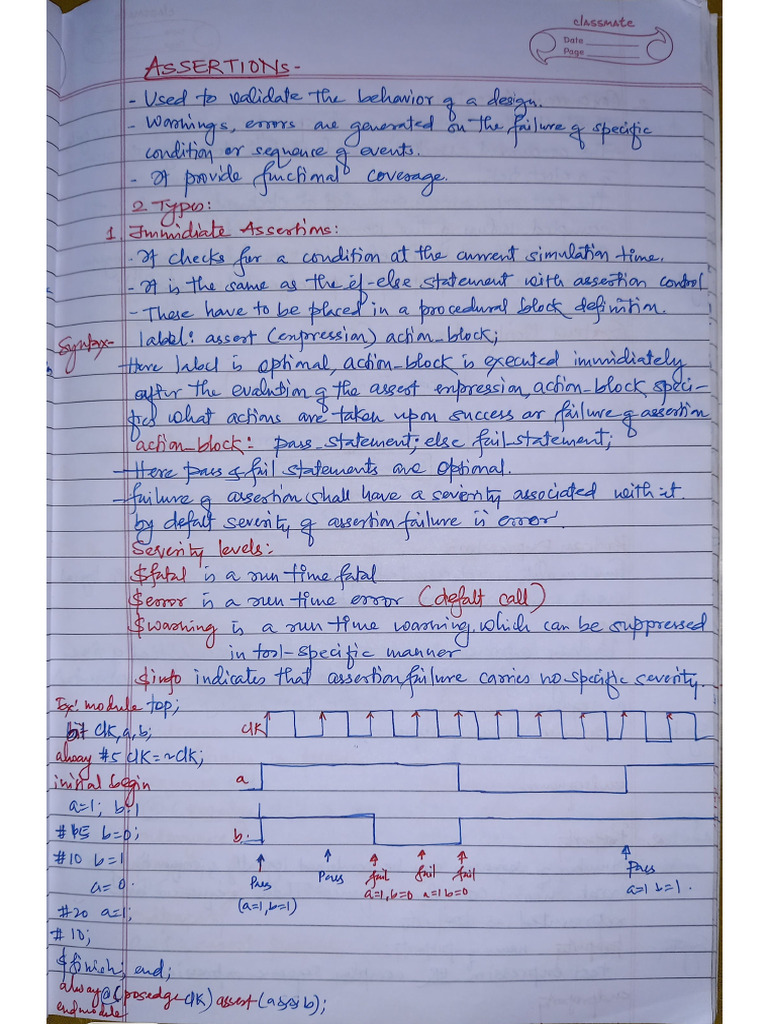 classmate
Date
Page
ASSERTIONS-
- Used to validate the behavior of a design.
- Warnings, errors are generated on the failure of specific
condition or sequence of events.
- It provide functional coverage.
2 Types:
1. Immidiate Assertions:
- It checks for a condition at the current simulation time.
- It is the same as the if-else statement with assertion control
- These have to be placed in a procedural block definition.
Syntax- label: assert (expression) action_block;
Here label is optional, action-block is executed immidiately
after the evalution of the assert expression, action-block speci-
fies what actions are taken upon success or failure of assertion
action_block: pass_statement; else fail_statement;
- Here pass & fail statements are optional.
- failure of assertion shall have a severity associated with it.
by defalt severity of assertion failure is error.
Severity levels:
$fatal is a run time fatal
$error is a run time error (defalt call)
$warning is a run time warning, which can be suppressed
in tool-specific manner
$info indicates that assertion failure carries no specific severity.
Ex: module top;
bit clk, a, b; clk
alway #5 clk=~clk;
initial begin a
a=1; b=1
#15 b=0; b
#10 b=1
a=0.
Pass Pass fail fail fail Pass
(a=1, b=1) a=1, b=0 a=1 b=0 a=1 b=1.
#20 a=1;
#10;
$finish; end;
alway@(posedge clk) assert (a&&b);
endmodule